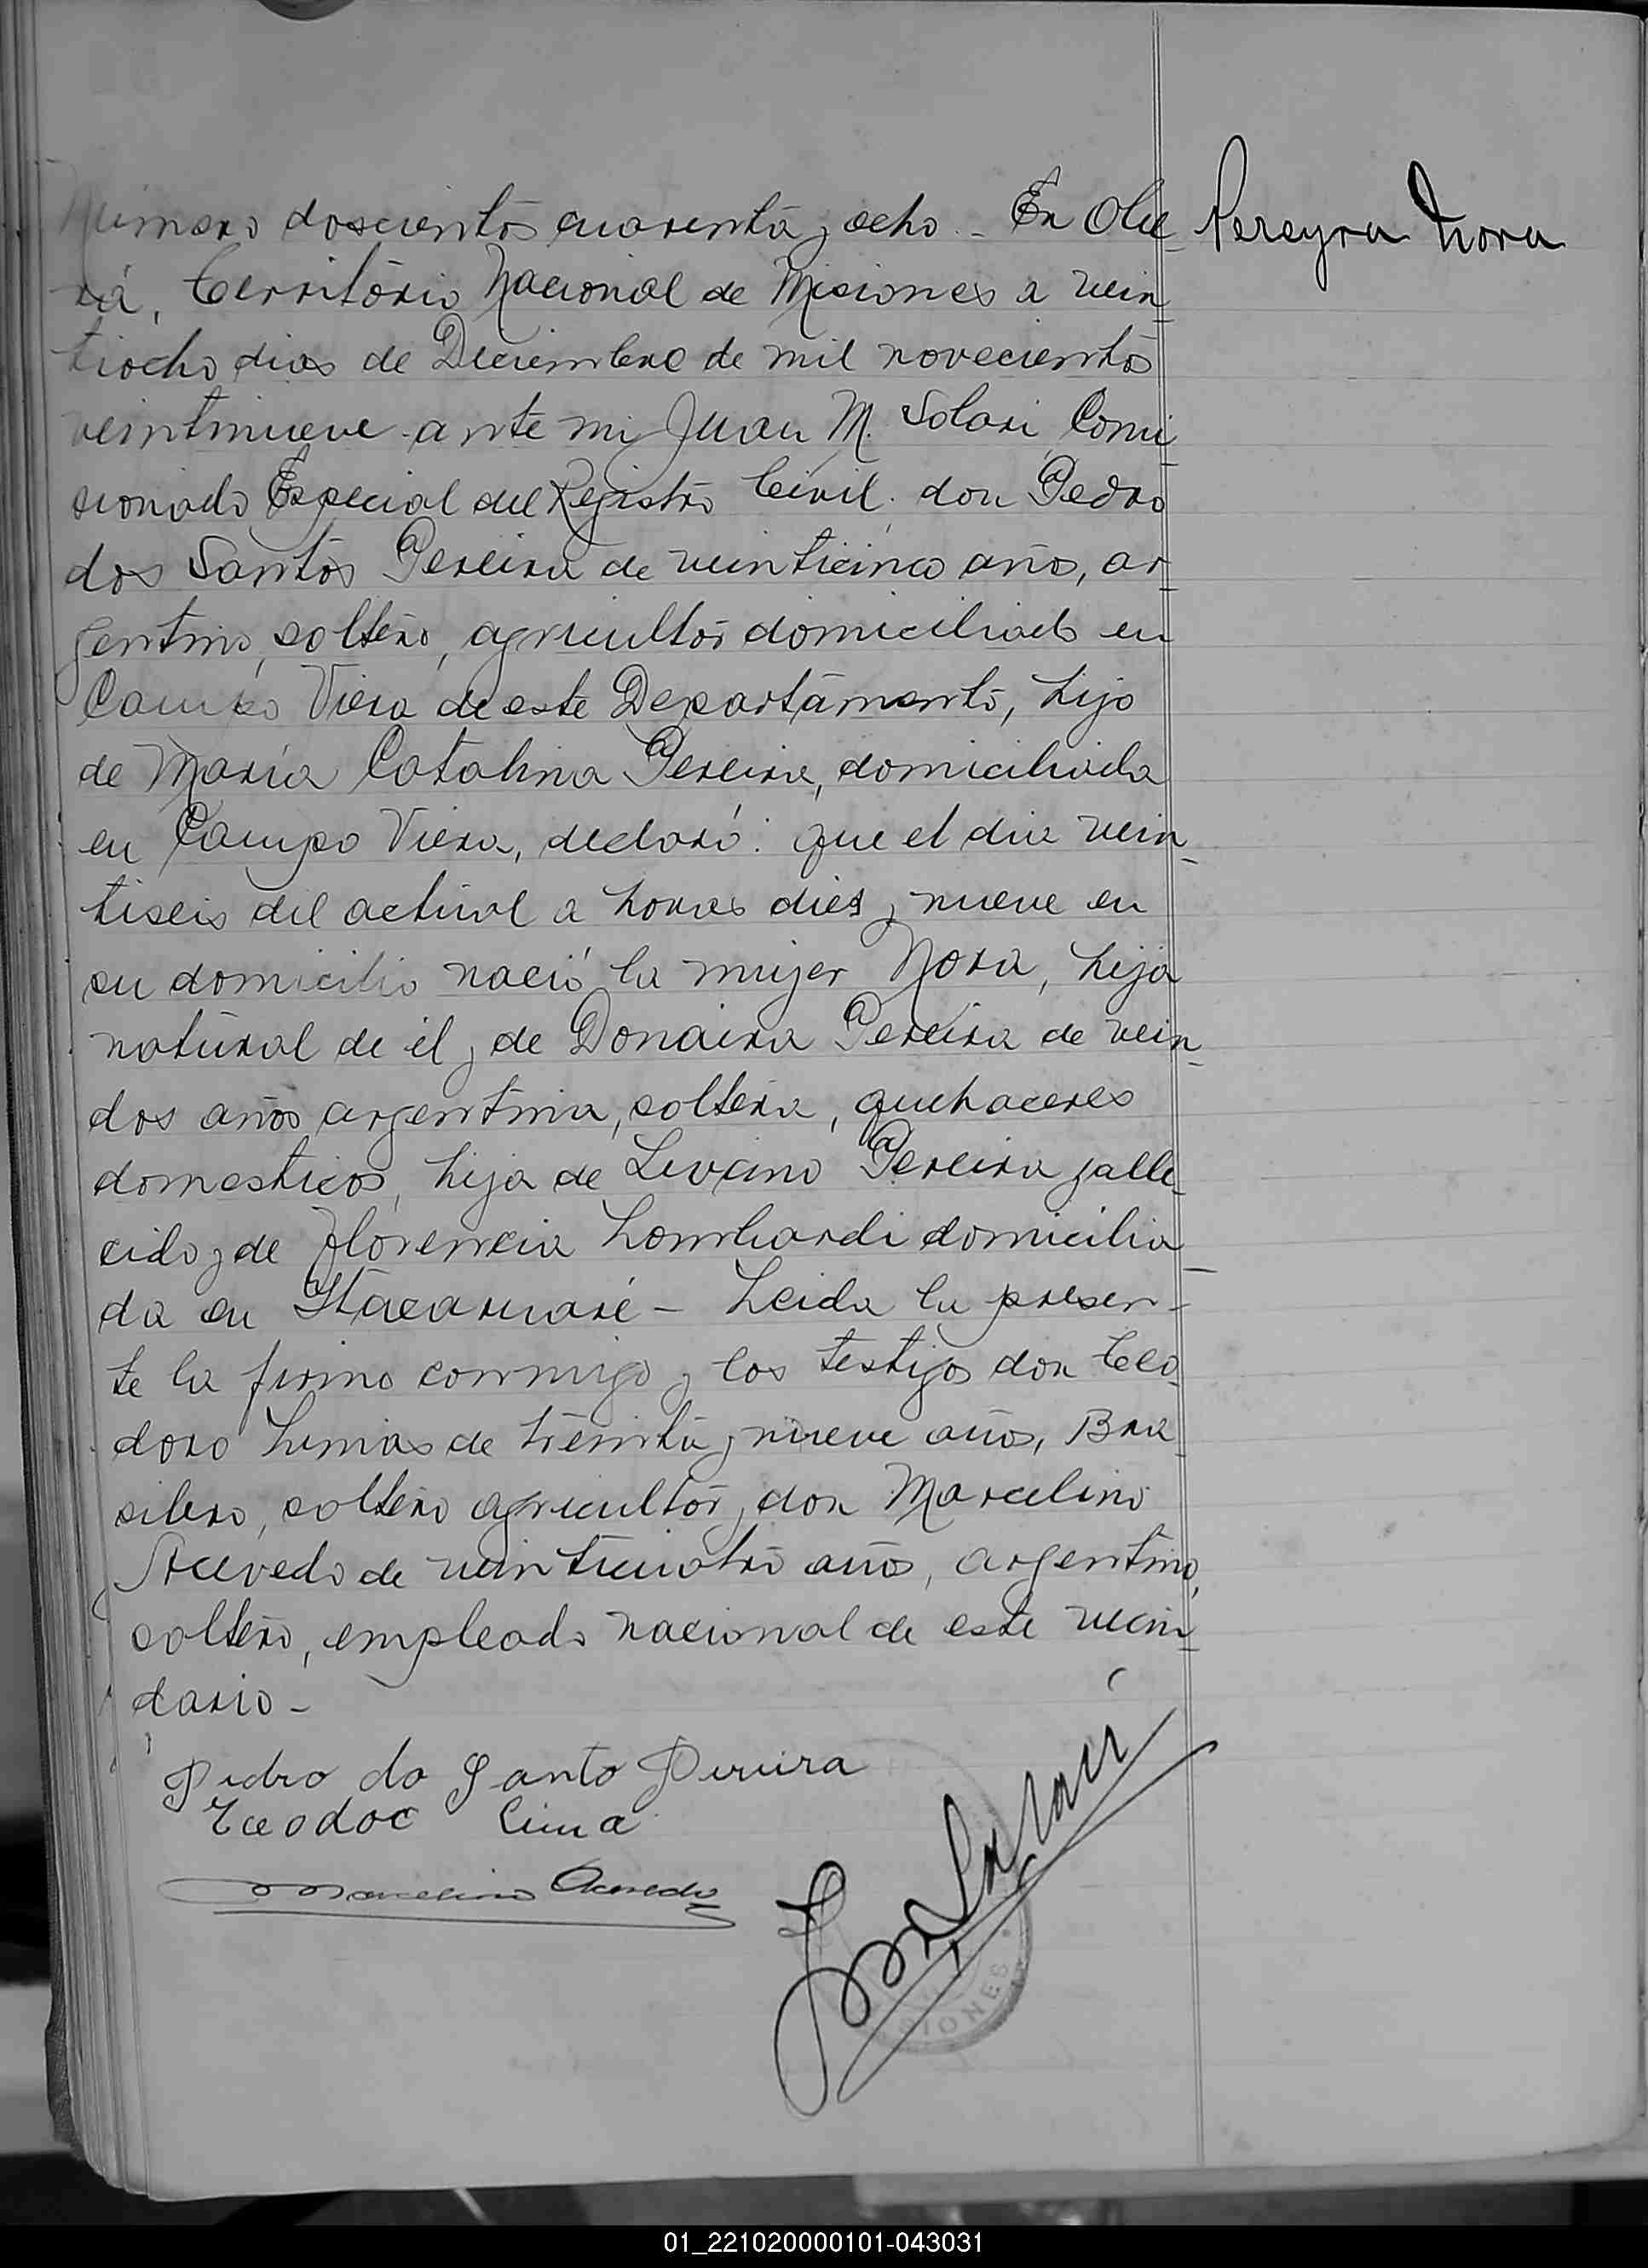 Numero doscientos cuarenta y ocho.- En Obe Pereyra Nora
rá, Territorio Nacional de Misiones a vein
tiocho dias de Diciembre de mil novecientos
veintinueve ante mi Juan M. Solari Comi
sionado Especial del Registro Civil, don Pedro
dos Santos Pereira de veinticinco años, ar
gentino, soltero, agricultor domiciliado en
Campo Viera de este Departamento, hijo
de Maria Catalina Pereira, domiciliada
en Campo Viera, declaró: que el dia vein-
tiseis del actual a horas diez y nueve en
su domicilio nació la mujer Nora, hija
natural de él y de Donaira Pereira de vein
dos años argentina, soltera, quehaceres
domesticos, hija de Livcino Pereira falle
cido y de Florencia Lombardi domicilia
da en Itacaruaré - Leida la presen-
te la firmo conmigo y los testigos don Teo
doro Limas de treinta y nueve años, Bra
silero, soltero agricultor y don Marcelino
Acevedo de veinticuatro años, argentino,
soltero, empleado nacional de este vecin
dario -
Pedro do Santo Pereira
Teodoc Lima
Marcelino Acevedo
Solari
SIONES
01_221020000101-043031